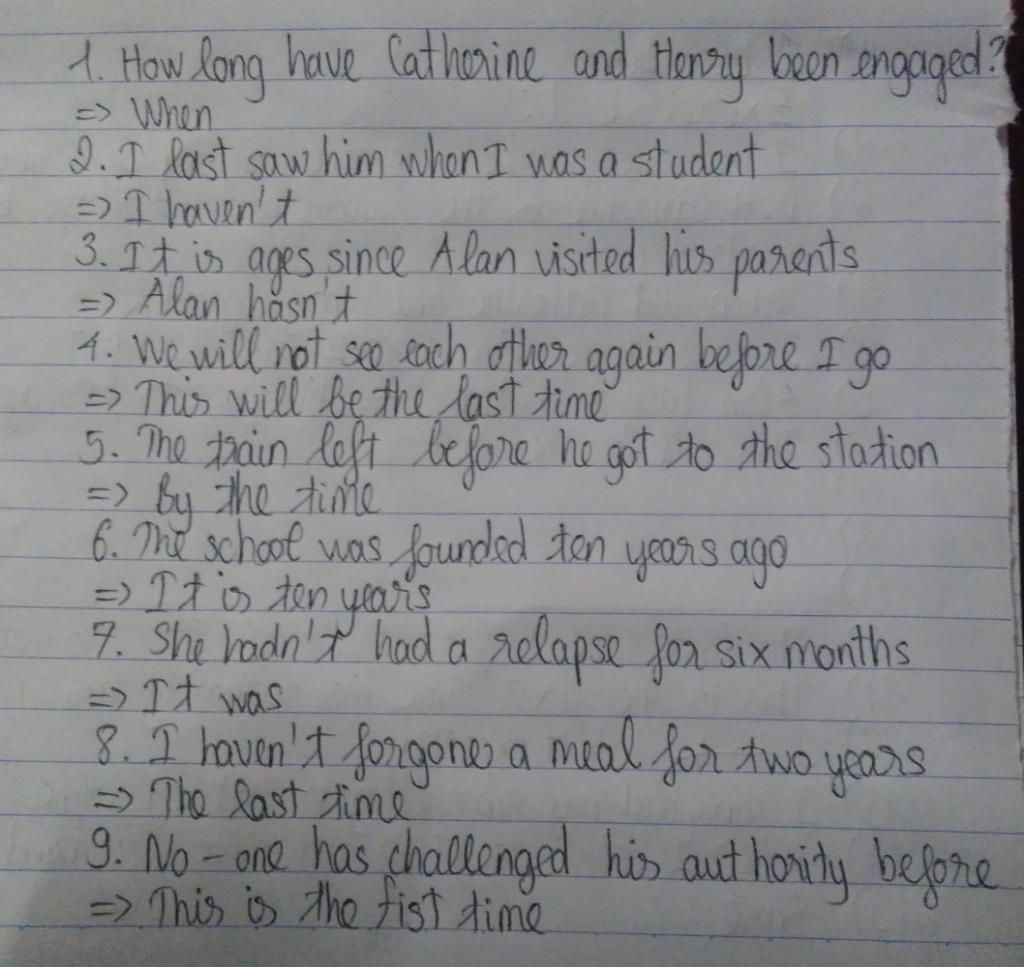 1. How long have Catherine and Henry been engaged?
=> When
2. I last saw him when I was a student
=> I haven't
3. It is ages since Alan visited his parents
=> Alan hasn't
4. We will not see each other again before I go
=> This will be the last time
5. The train left before he got to the station
=> By the time
6. The school was founded ten years ago
=> It is ten years
7. She hadn't had a relapse for six months
=> It was
8. I haven't forgone a meal for two years
=> The last time
9. No-one has challenged his authority before
=> This is the fist time